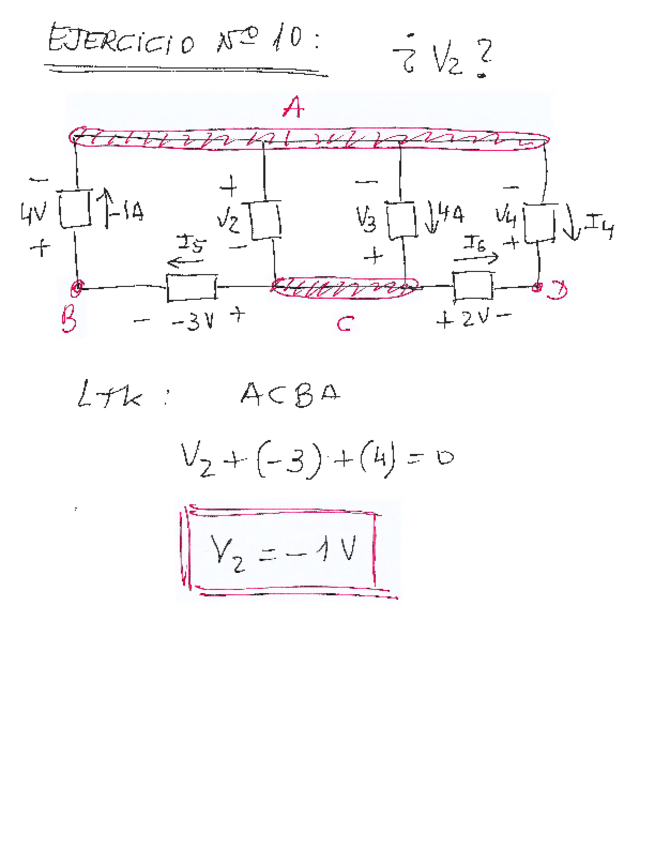 EJERCICIO Nº 10: ¿V2?
A
- + - -
4V -1A V2 V3 4A V4 I4
+ I5 - + I6 +
B - -3V + C + 2V - D
LTK: ACBA
V2 + (-3) + (4) = 0
V2 = -1V